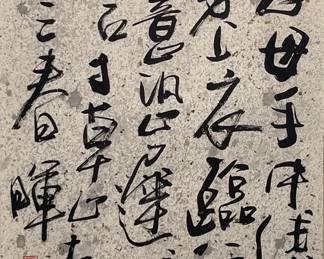 母手中
上衣臨
意恐遲
言寸草心
三春暉